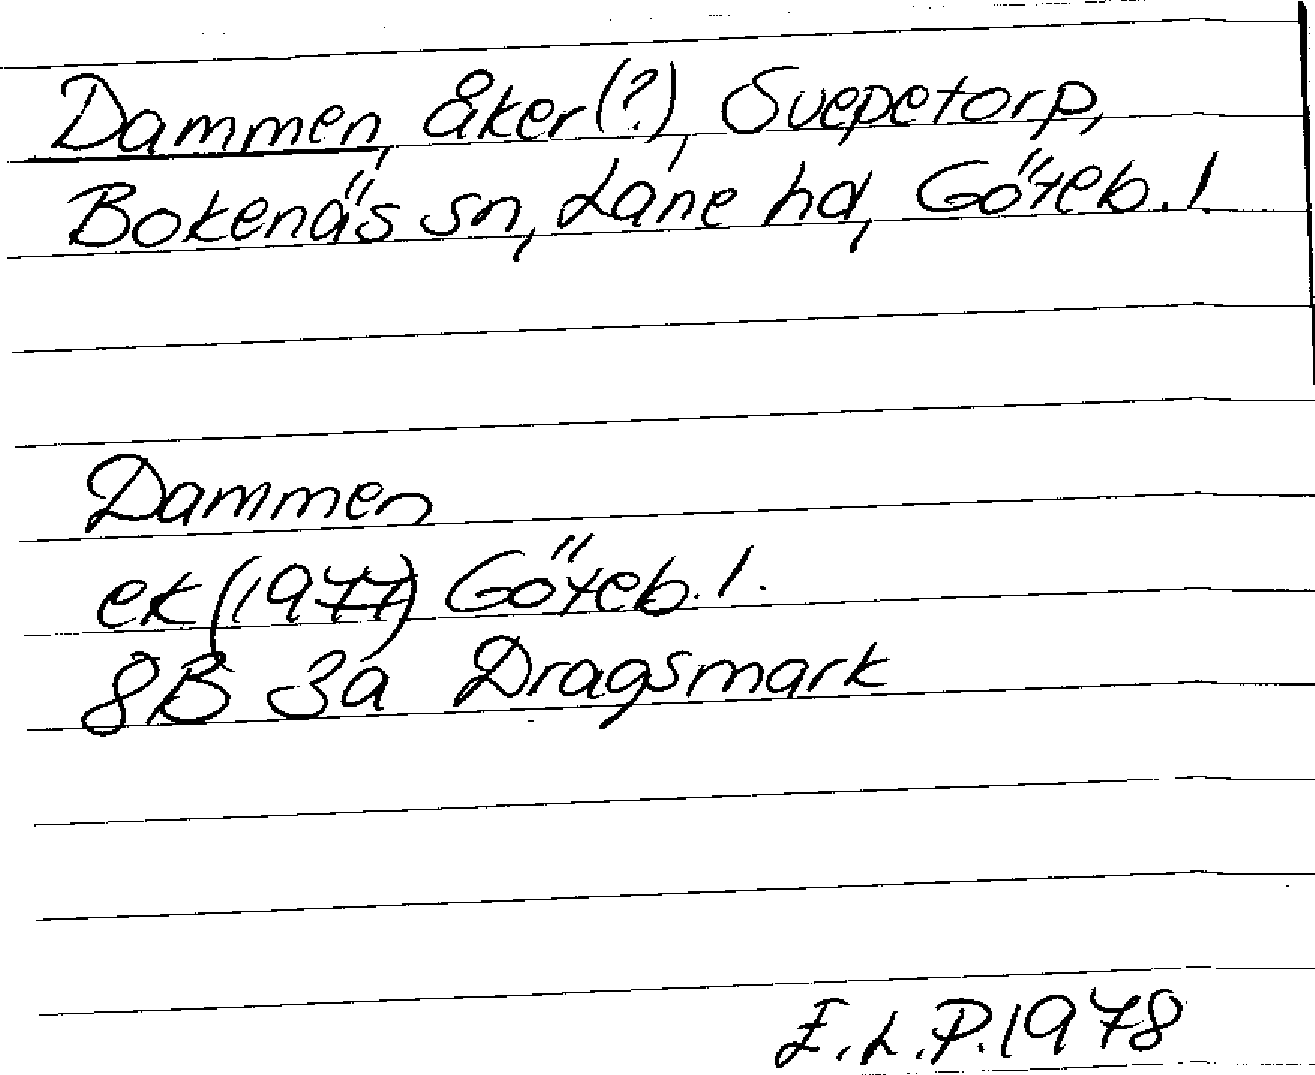 Dammen, åker(?), Svepetorp,
Bokenäs sn, Lane hd, Göteb. l.
Dammen
ek (1977) Göteb. l.
8B 3a Dragsmark
E.L.P. 1978